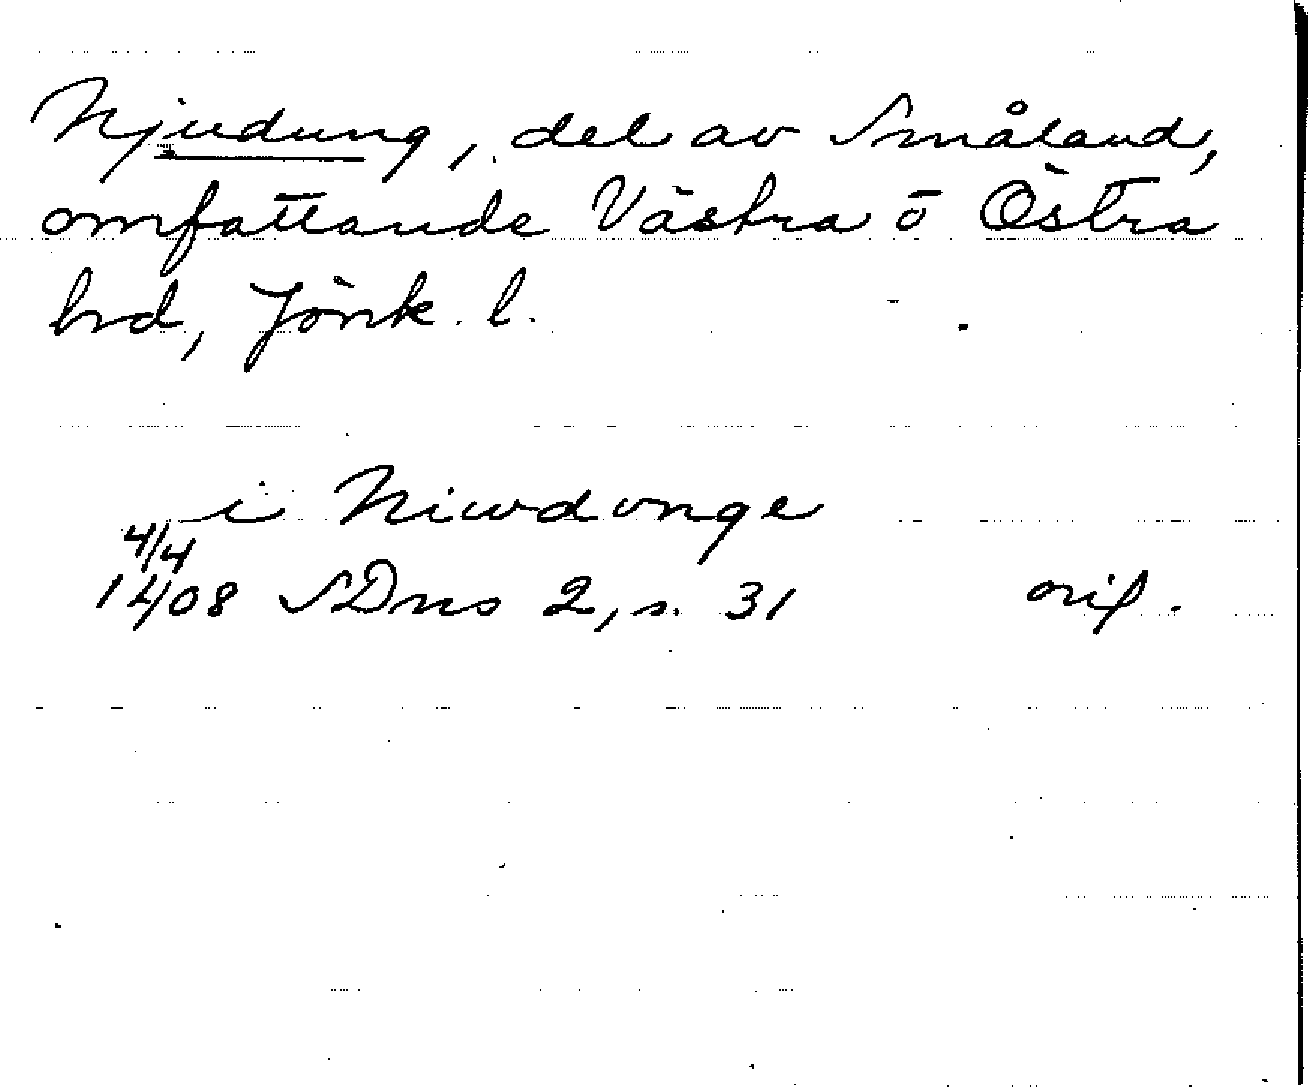 Njudung, del av Småland,
omfattande Västra o Östra
hrd, Jönk. l.
i Niwdonge
4/4
1408 SDns 2, s. 31 orig.